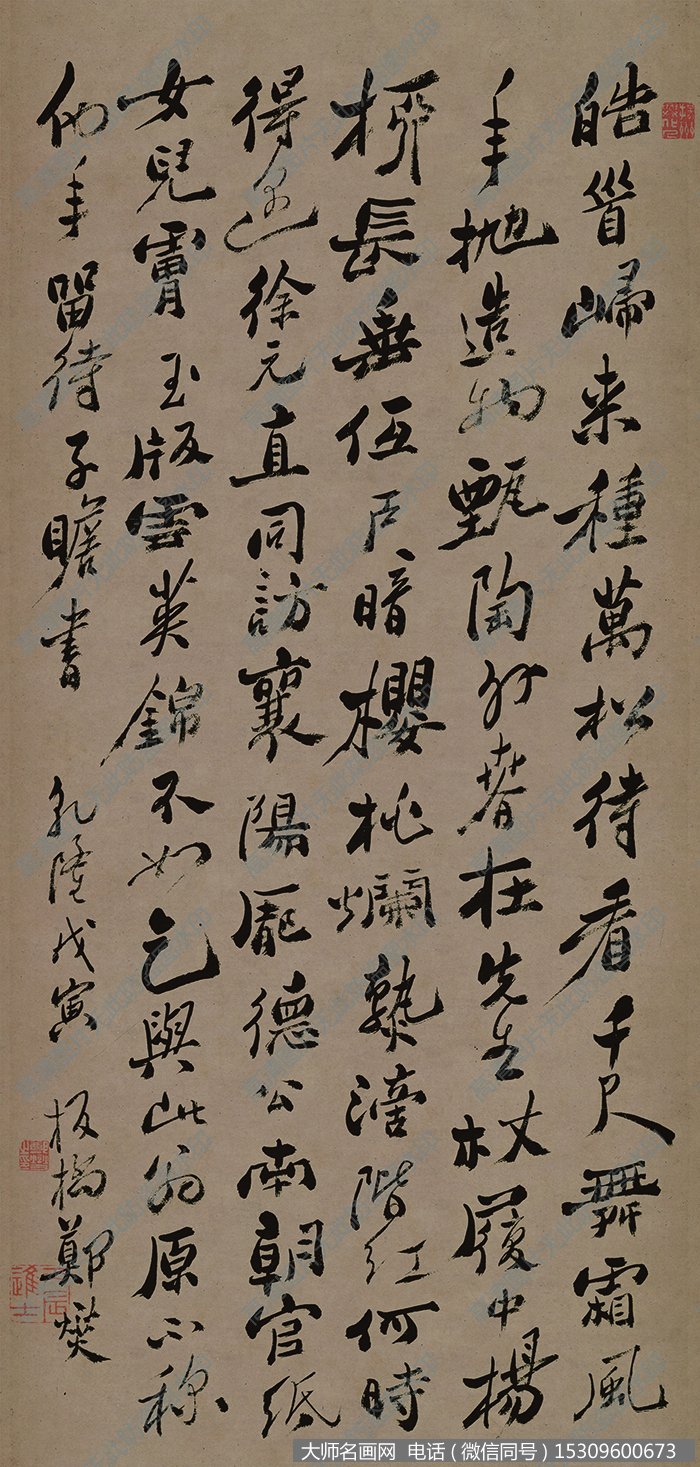 皓首歸来種萬松待看千尺舞霜風
手抛造物甄陶外春在先生杖屨中楊
柳長垂伍戶暗櫻桃爛熟滴階紅何時
得逐徐元直同訪襄陽龐德公南朝官纸
女兒膚玉版雲英錦不如乞與此翁原不称
他年留待子瞻書
乾隆戊寅 板橋鄭燮
大师名画网 电话（微信同号）15309600673